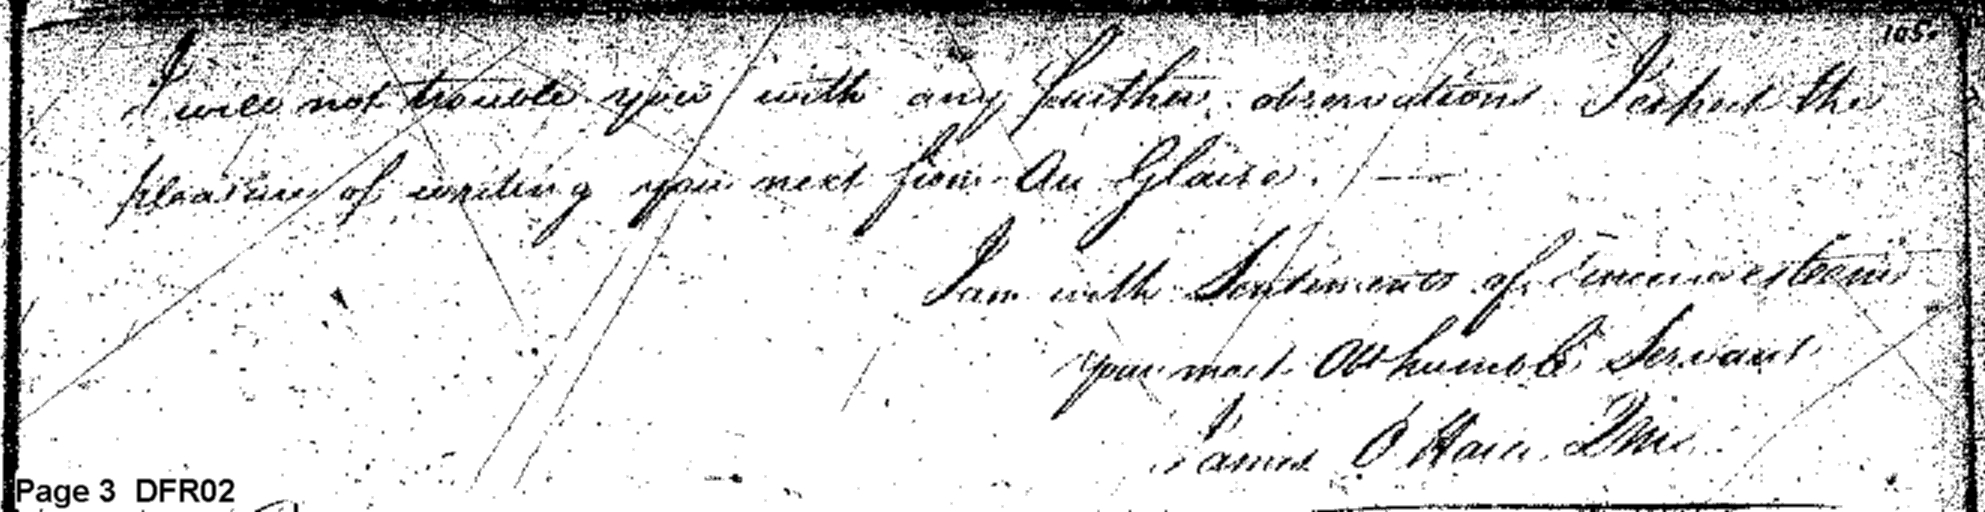 105.
I will not trouble you with any further observations I expect the
pleasure of writing you next from Au Glaise. —
I am with Sentiments of Sincere esteem
your most Obt humble Servant
James O'Hara QMG
Page 3 DFR02